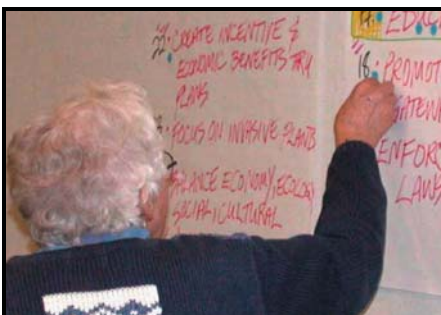 22. CREATE INCENTIVE &
ECONOMIC BENEFITS THRU
PLANS
FOCUS ON INVASIVE PLANTS
BALANCE ECONOMY, ECOLOGY
SOCIAL, CULTURAL
17. EDUC
18. PROMOT
GATEW
ENFORC
LAWS